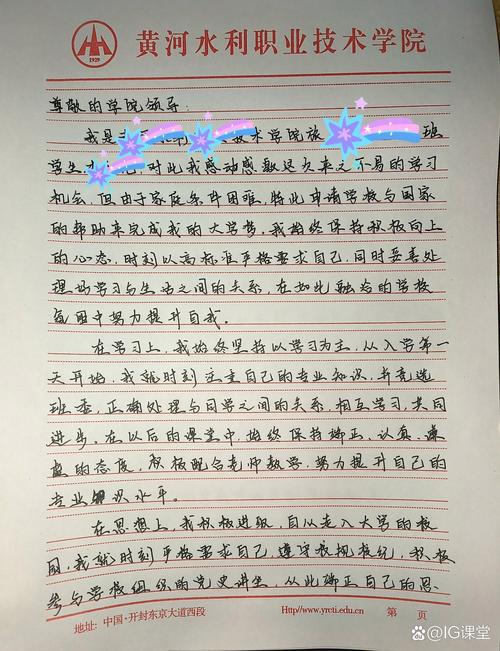 1929
黄河水利职业技术学院
尊敬的学院领导:
我是 技术学院 班
学生 对此我感动感激这次来之不易的学习
机会,但由于家庭条件困难,特此申请学校与国家
的帮助来完成我的大学梦。我始终保持积极向上
的心态,时刻以高标准严格要求自己,同时妥善处
理好学习与生活之间的关系,在如此融洽的学校
氛围中努力提升自我。
在学习上,我始终坚持以学习为主,从入学第一
天开始,我就时刻注重自己的专业知识,并竞选
班委,正确处理与同学之间的关系,相互学习,共同
进步。在以后的课堂中,始终保持端正、认真、谦
虚的态度,积极配合老师教学,努力提升自己的
专业知识水平。
在思想上,我积极进取,自从走入大学的校
园,我就时刻严格要求自己,遵守校规校纪,积极
参与学校组织的党史讲坐,从此端正自己的思
地址:中国·开封东京大道西段 Http//www.yrcti.edu.cn 第 页
@IG课堂